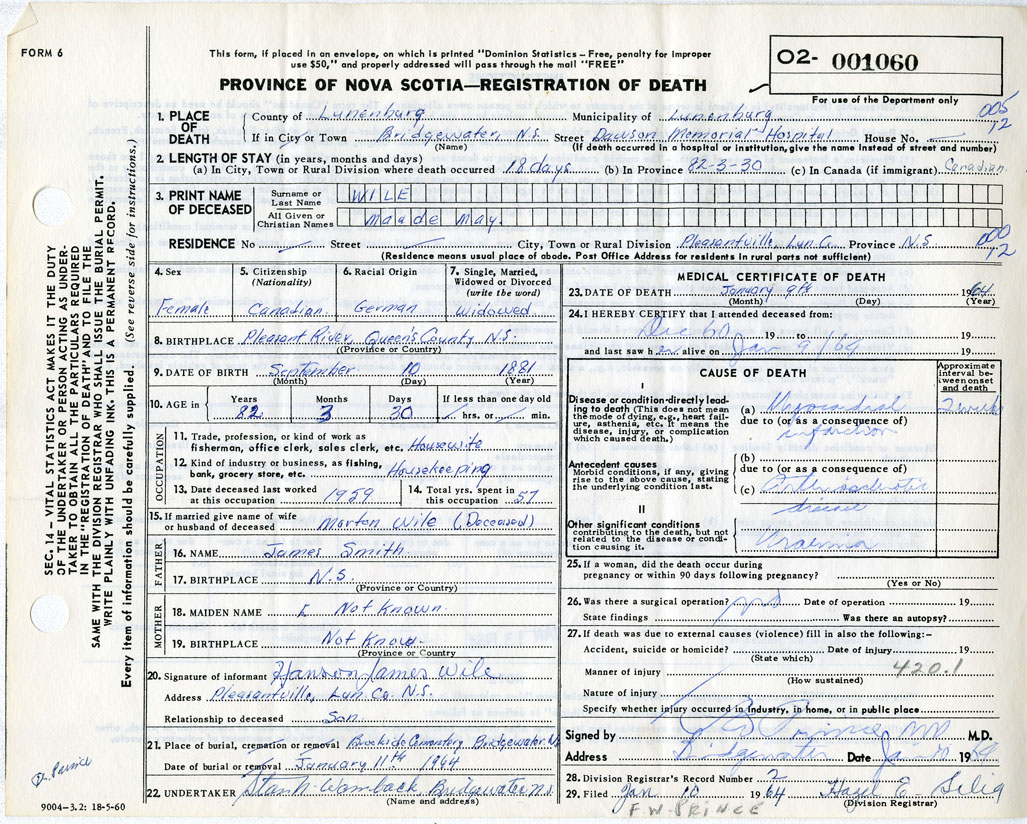 FORM 6
This form, if placed in an envelope, on which is printed "Dominion Statistics – Free, penalty for improper
use $50," and properly addressed will pass through the mail "FREE"
O2- 001060
For use of the Department only
PROVINCE OF NOVA SCOTIA—REGISTRATION OF DEATH
005
12
1. PLACE OF DEATH
County of Lunenburg Municipality of Lunenburg
If in City or Town Bridgewater, N.S. Street Dawson Memorial Hospital House No.
(Name) (If death occurred in a hospital or institution, give the name instead of street and number)
2. LENGTH OF STAY (in years, months and days)
(a) In City, Town or Rural Division where death occurred 18 days (b) In Province 82-3-30 (c) In Canada (if immigrant) Canadian
3. PRINT NAME OF DECEASED
Surname or Last Name WILE
All Given or Christian Names Maude May.
RESIDENCE No Street City, Town or Rural Division Pleasantville, Lun. Co. Province N.S.
000
12
(Residence means usual place of abode. Post Office Address for residents in rural parts not sufficient)
4. Sex Female
5. Citizenship (Nationality) Canadian
6. Racial Origin German
7. Single, Married, Widowed or Divorced (write the word) Widowed
8. BIRTHPLACE Pleasant River, Queen's County N.S.
(Province or Country)
9. DATE OF BIRTH September 10 1881
(Month) (Day) (Year)
10. AGE in
Years Months Days If less than one day old
82 3 30 hrs. or min.
OCCUPATION
11. Trade, profession, or kind of work as
fisherman, office clerk, sales clerk, etc. Housewife
12. Kind of industry or business, as fishing,
bank, grocery store, etc. Housekeeping
13. Date deceased last worked
at this occupation 1959
14. Total yrs. spent in
this occupation 57
15. If married give name of wife
or husband of deceased Morton Wile (Deceased)
FATHER
16. NAME James Smith
17. BIRTHPLACE N.S.
(Province or Country)
MOTHER
18. MAIDEN NAME Not Known
19. BIRTHPLACE Not Know
(Province or Country)
20. Signature of informant Hanson James Wile
Address Pleasantville, Lun. Co. N.S.
Relationship to deceased Son
21. Place of burial, cremation or removal Brookside Cemetery Bridgewater N.S.
Date of burial or removal January 11th 1964
22. UNDERTAKER Stan N. Wamback Bridgewater N.S.
(Name and address)
MEDICAL CERTIFICATE OF DEATH
23. DATE OF DEATH January 9th 1964
(Month) (Day) (Year)
24. I HEREBY CERTIFY that I attended deceased from:
Dec 60 19 to 19
and last saw her alive on Jan 9/64 19
CAUSE OF DEATH
Approximate interval between onset and death
I
Disease or condition directly leading to death (This does not mean the mode of dying, e.g., heart failure, asthenia, etc. It means the disease, injury, or complication which caused death.)
(a) Myocardial
due to (or as a consequence of)
infarction
2 weeks
Antecedent causes
Morbid conditions, if any, giving rise to the above cause, stating the underlying condition last.
(b)
due to (or as a consequence of)
(c) Arteriosclerotic
disease
II
Other significant conditions
contributing to the death, but not related to the disease or condition causing it.
Uraemia
25. If a woman, did the death occur during
pregnancy or within 90 days following pregnancy?
(Yes or No)
26. Was there a surgical operation? Date of operation 19
State findings Was there an autopsy?
27. If death was due to external causes (violence) fill in also the following:–
Accident, suicide or homicide? Date of injury 19
(State which)
Manner of injury 420.1
(How sustained)
Nature of injury
Specify whether injury occurred in industry, in home, or in public place
Signed by Prince MD M.D.
Address Bridgewater Date Jan 10 1964
28. Division Registrar's Record Number 2
29. Filed Jan 10 1964 Hazel E. Selig
(Division Registrar)
F W. PRINCE
Dr. Prince
9004–3.2: 18-5-60
SEC. 14 – VITAL STATISTICS ACT MAKES IT THE DUTY
OF THE UNDERTAKER OR PERSON ACTING AS UNDER-
TAKER TO OBTAIN ALL THE PARTICULARS REQUIRED
IN THE "REGISTRATION OF DEATH" AND TO FILE THE
SAME WITH THE DIVISION REGISTRAR WHO SHALL ISSUE THE BURIAL PERMIT.
WRITE PLAINLY WITH UNFADING INK. THIS IS A PERMANENT RECORD.
Every item of information should be carefully supplied. (See reverse side for instructions.)